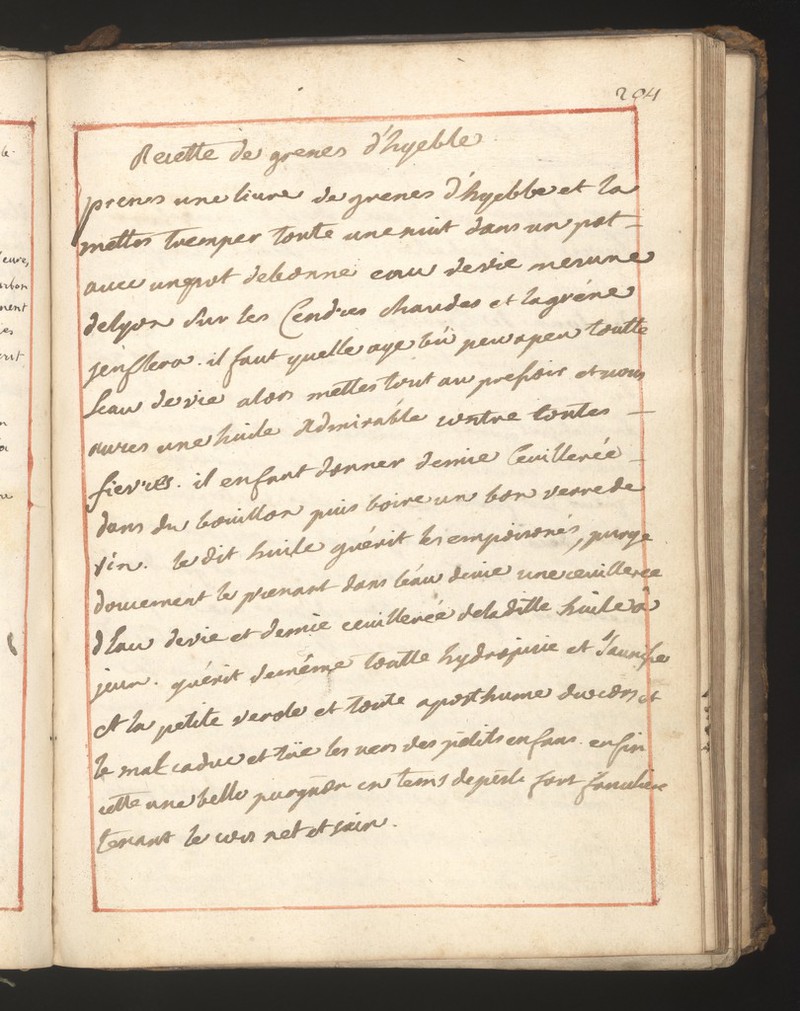 204
Recette de grenes d'hyeble
prenes une livre de grenes d'hyebbe et la
mettes tremper toute une nuit dans un pot
avec un pot de bonne eau de vie mesure
de lyon sur les Cendres chaudes et la gréne
s'enflera. il faut quelle aye bû peu a peu toutte
leau de vie alors mettes tout au presoir et vous
aures une huile Admirable contre toutes
fievres. il en faut donner demie Ceuillerée
dans du bouillon puis boire un bon verre de
vin. le dit huile guérit les empoisonés, purge
doucement le prenant dans léau de vie une ceuilleree
d'Eau de vie et demie ceuillereé de la ditte huile à
jeun. guérit de méme toutte hydropisie et Jaunisse
et la petite verole et toute aposthume du cors et
le mal caduc et tüe les vers des petits enfans. enfin
cette une belle purgaôn en tems de peste fort familiere
tenant le cors net et sain.